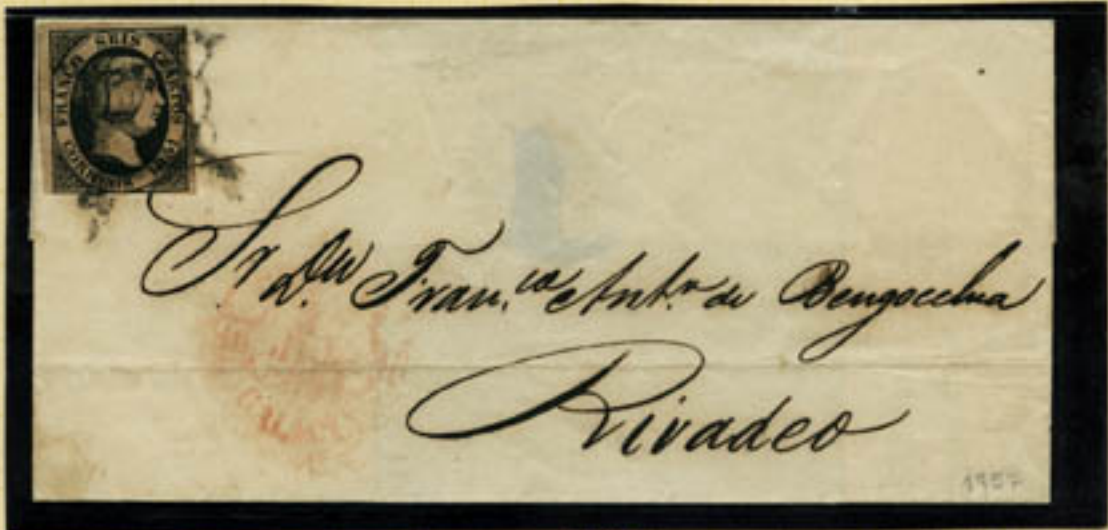 FRANCO SEIS CUARTOS
CORREOS 1851
Sr Dn Fran.co Ant.o de Bengoechea
Rivadeo
GALICIA
1957